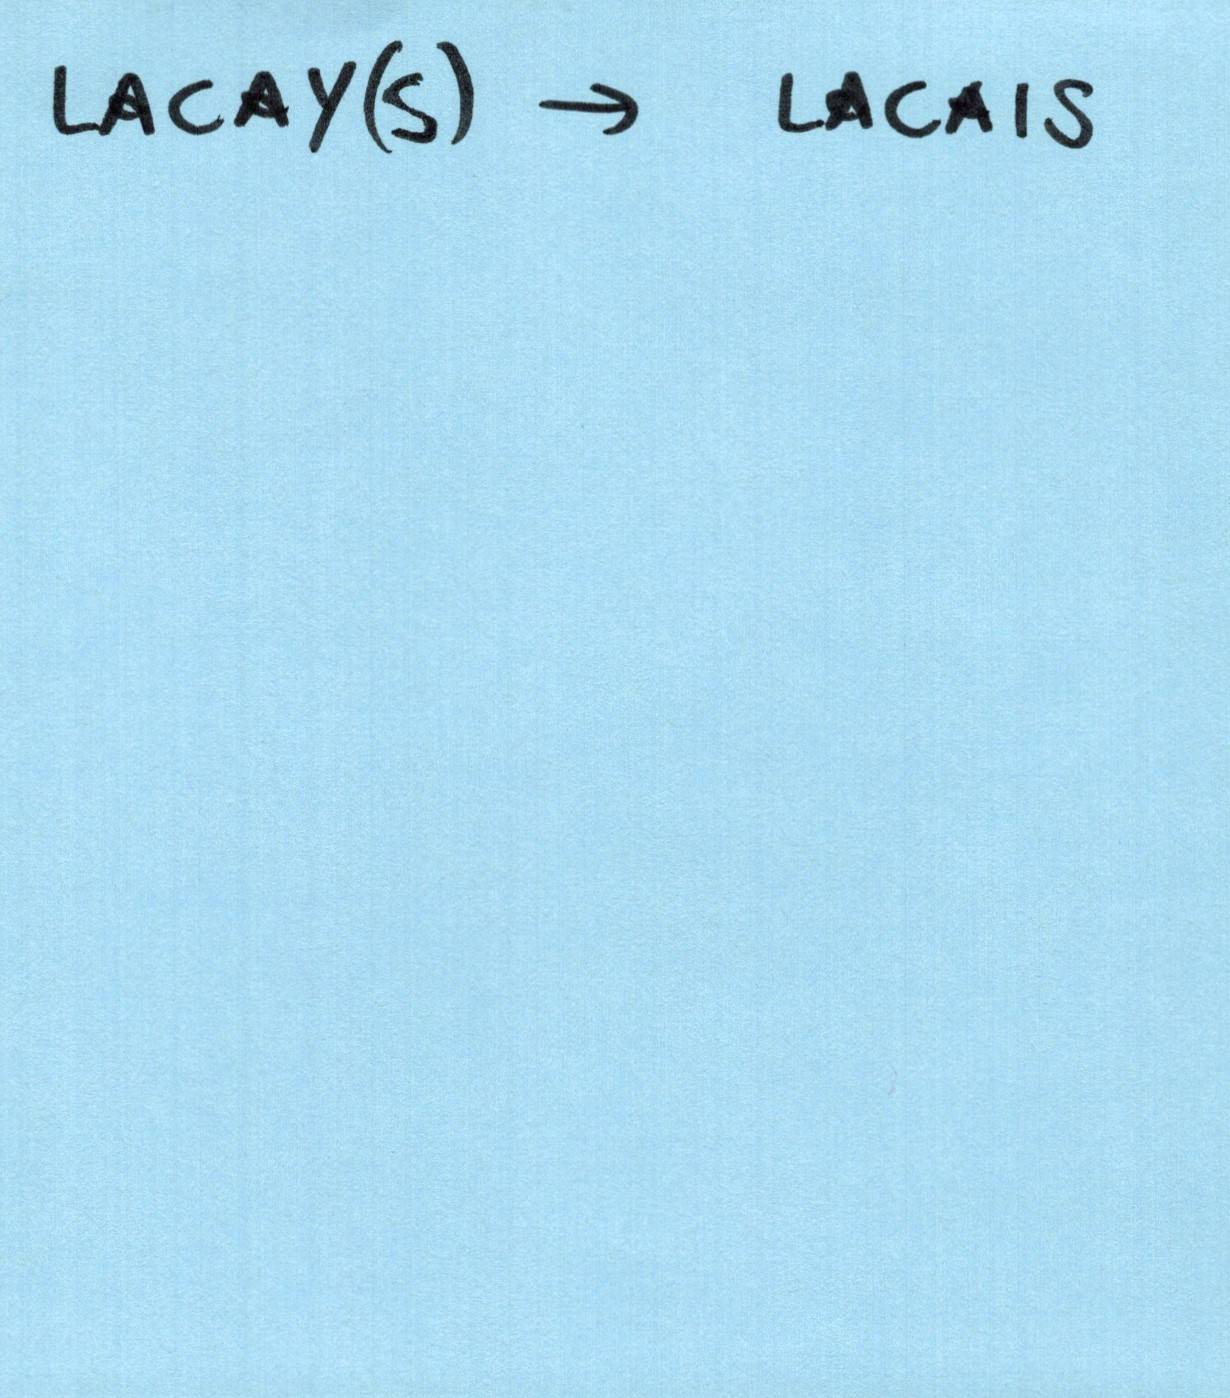 LACAY(S) → LACAIS